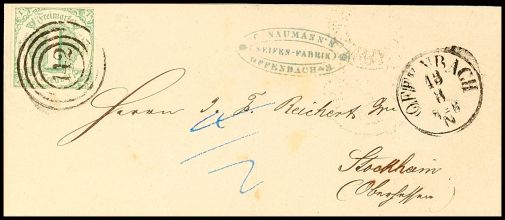 Freimarke
142
C. NAUMANN'S
SEIFEN-FABRIK
OFFENBACH
OFFENBACH
13
8
N
Herrn J. F. Reichert
Stockheim
(Oberhessen)